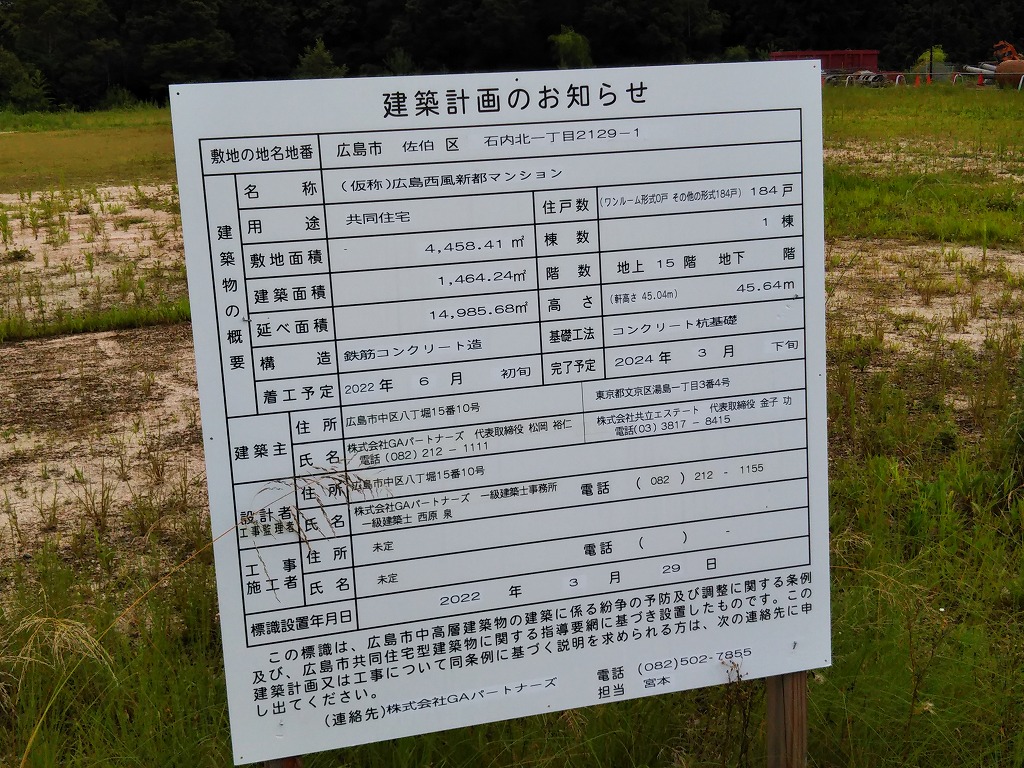 建築計画のお知らせ
敷地の地名地番 広島市 佐伯 区 石内北一丁目2129-1
建築物の概要
名称 (仮称)広島西風新都マンション
用途 共同住宅 住戸数 (ワンルーム形式0戸 その他の形式184戸) 184戸
敷地面積 4,458.41 ㎡ 棟数 1 棟
建築面積 1,464.24㎡ 階数 地上 15 階 地下 階
延べ面積 14,985.68㎡ 高さ (軒高さ 45.04m) 45.64m
構造 鉄筋コンクリート造 基礎工法 コンクリート杭基礎
着工予定 2022 年 6 月 初旬 完了予定 2024 年 3 月 下旬
建築主
住所 広島市中区八丁堀15番10号 東京都文京区湯島一丁目3番4号
氏名 株式会社GAパートナーズ 代表取締役 松岡 裕仁 株式会社共立エステート 代表取締役 金子 功
電話(082) 212 - 1111 電話(03) 3817 - 8415
設計者
工事監理者
住所 広島市中区八丁堀15番10号
氏名 株式会社GAパートナーズ 一級建築士事務所 電話 ( 082 ) 212 - 1155
一級建築士 西原 泉
工事
施工者
住所 未定
氏名 未定 電話 ( ) -
標識設置年月日 2022 年 3 月 29 日
この標識は、広島市中高層建築物の建築に係る紛争の予防及び調整に関する条例
及び、広島市共同住宅型建築物に関する指導要綱に基づき設置したものです。この
建築計画又は工事について同条例に基づく説明を求められる方は、次の連絡先に申
し出てください。
(連絡先)株式会社GAパートナーズ 電話 (082)502-7855
担当 宮本